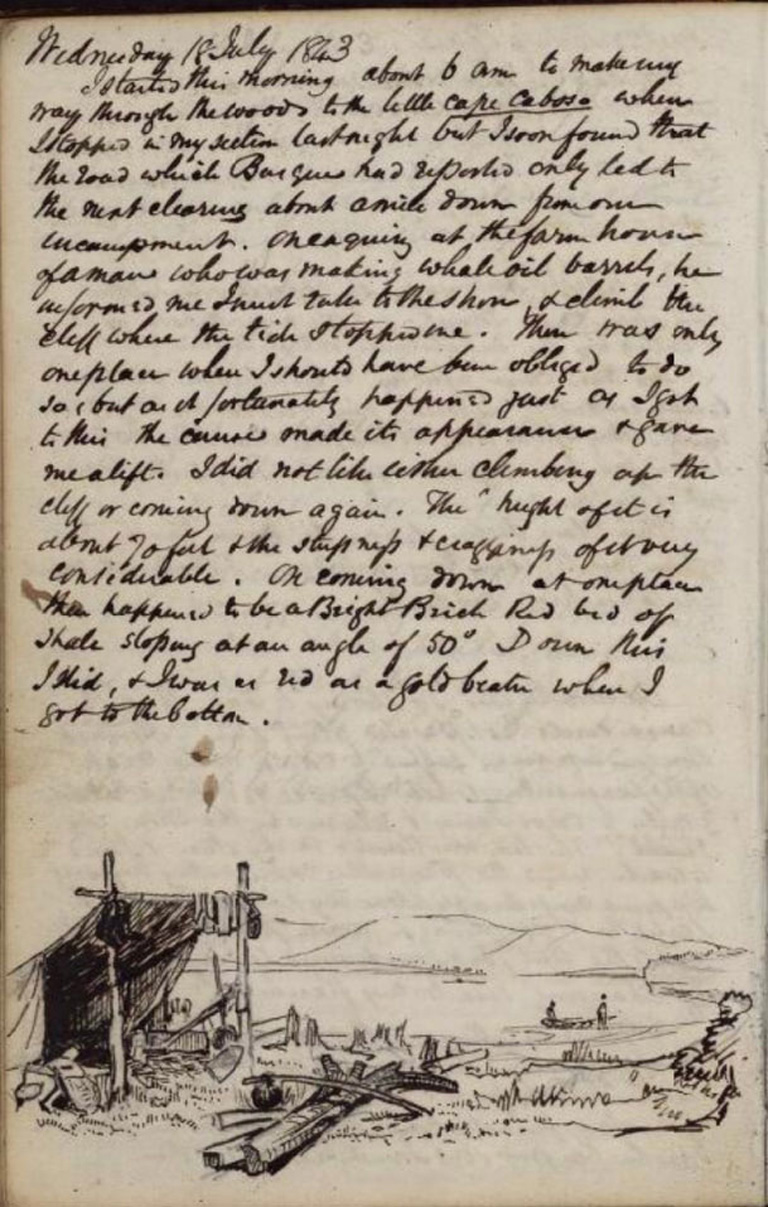 Wednesday 18 July 1843
I started this morning about 6 am to make my
way through the woods to the little cape Caboso where
I stopped in my section last night but I soon found that
the road which Basque had reported only led to
the next clearing about a mile down from our
incampment. On enquiring at the farm house
of a man who was making whale oil barrels, he
informed me I must take to the shore, & climb the
cliff where the tide stopped me. There was only
one place where I should have been obliged to do
so, but as it fortunately happened just as I got
to this the canoe made its appearance & gave
me a lift. I did not like either climbing up the
cliff or coming down again. The height of it is
about 70 feet & the steepness & cragginess of it very
considerable. On coming down at one place
there happened to be a Bright Brick Red bed of
shale sloping at an angle of 50° Down this
I slid, & I was as red as a gold beater when I
got to the bottom.